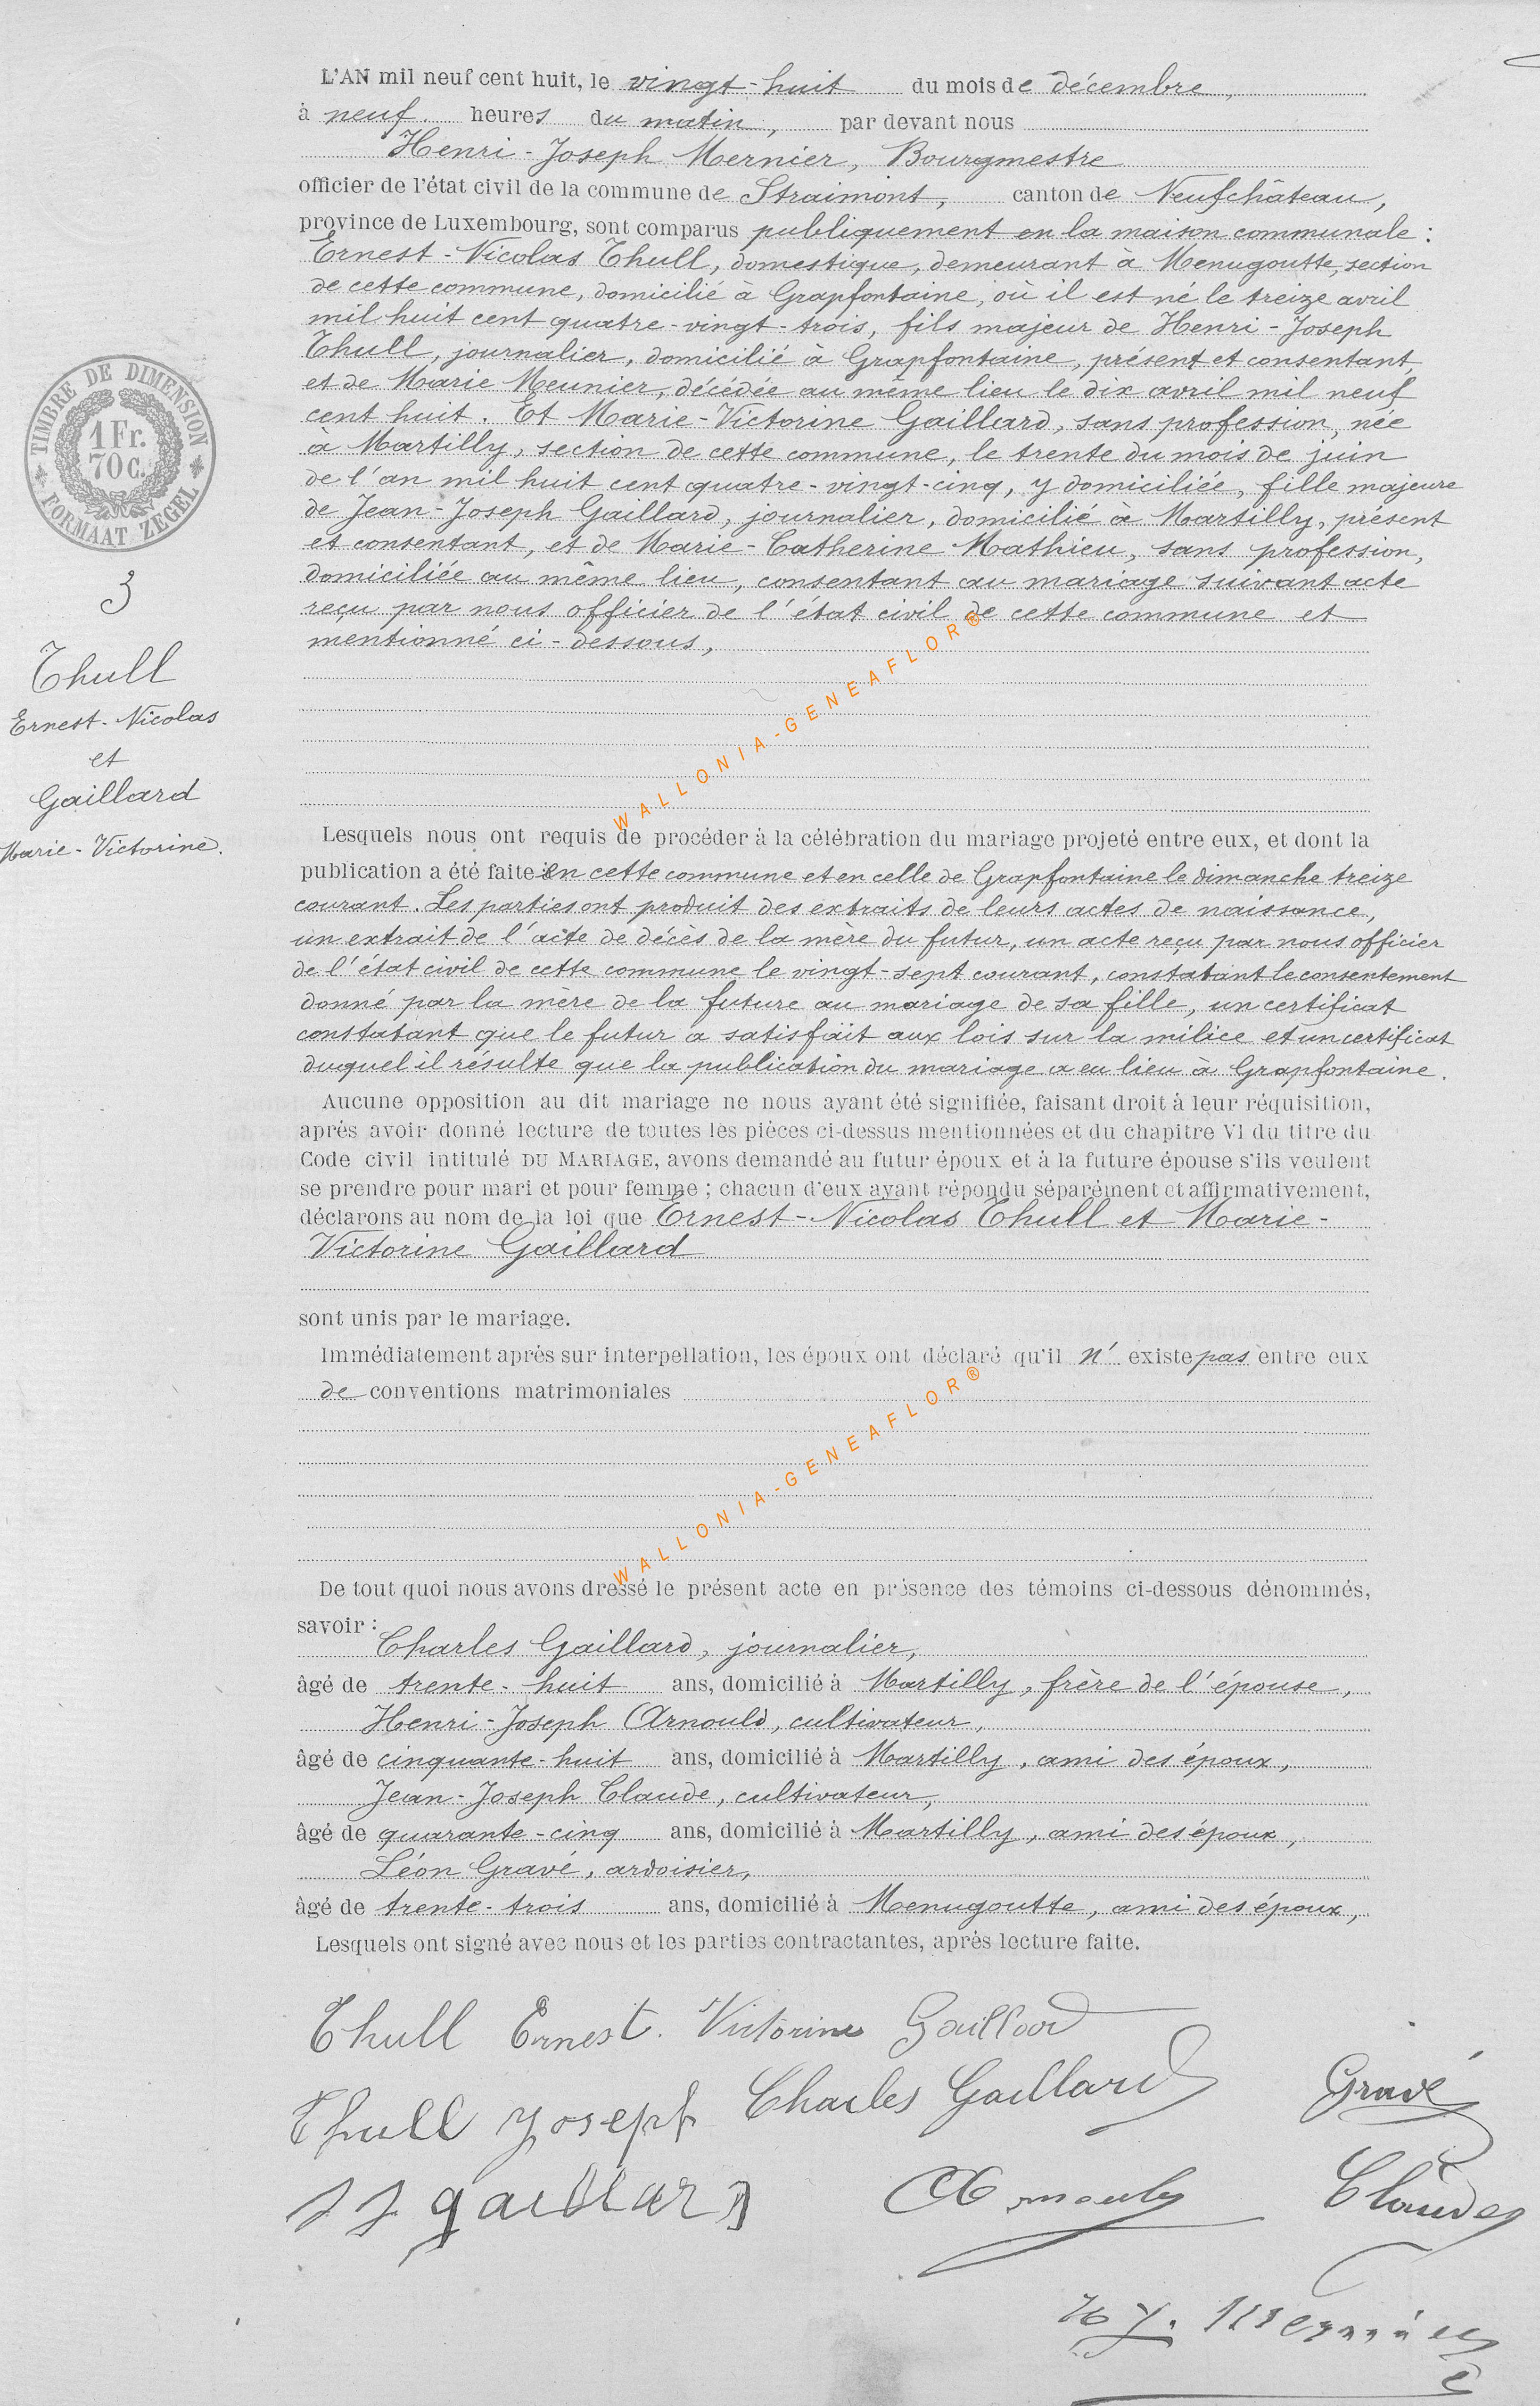 L'AN mil neuf cent huit, le vingt-huit du mois de décembre,
à neuf heures du matin, par devant nous
Henri-Joseph Mernier, Bourgmestre
officier de l'état civil de la commune de Straimont, canton de Neufchâteau,
province de Luxembourg, sont comparus publiquement en la maison communale :
Ernest-Nicolas Thull, domestique, demeurant à Menugoutte, section
de cette commune, domicilié à Grapfontaine, où il est né le treize avril
mil huit cent quatre-vingt-trois, fils majeur de Henri-Joseph
Thull, journalier, domicilié à Grapfontaine, présent et consentant,
et de Marie Meunier, décédée au même lieu le dix avril mil neuf
cent huit. Et Marie-Victorine Gaillard, sans profession, née
à Martilly, section de cette commune, le trente du mois de juin
de l'an mil huit cent quatre-vingt-cinq, y domiciliée, fille majeure
de Jean-Joseph Gaillard, journalier, domicilié à Martilly, présent
et consentant, et de Marie-Catherine Mathieu, sans profession,
domiciliée au même lieu, consentant au mariage suivant acte
reçu par nous officier de l'état civil de cette commune et
mentionné ci-dessous,
TIMBRE DE DIMENSION
1 Fr.
70 c.
FORMAAT ZEGEL
3
Thull
Ernest-Nicolas
et
Gaillard
Marie-Victorine.
WALLONIA-GENEAFLOR®
Lesquels nous ont requis de procéder à la célébration du mariage projeté entre eux, et dont la
publication a été faite en cette commune et en celle de Grapfontaine le dimanche treize
courant. Les parties ont produit des extraits de leurs actes de naissance,
un extrait de l'acte de décès de la mère du futur, un acte reçu par nous officier
de l'état civil de cette commune le vingt-sept courant, constatant le consentement
donné par la mère de la future au mariage de sa fille, un certificat
constatant que le futur a satisfait aux lois sur la milice et un certificat
duquel il résulte que la publication du mariage a eu lieu à Grapfontaine.
Aucune opposition au dit mariage ne nous ayant été signifiée, faisant droit à leur réquisition,
après avoir donné lecture de toutes les pièces ci-dessus mentionnées et du chapitre VI du titre du
Code civil intitulé DU MARIAGE, avons demandé au futur époux et à la future épouse s'ils veulent
se prendre pour mari et pour femme ; chacun d'eux ayant répondu séparément et affirmativement,
déclarons au nom de la loi que Ernest-Nicolas Thull et Marie-
Victorine Gaillard
sont unis par le mariage.
Immédiatement après sur interpellation, les époux ont déclaré qu'il n' existe pas entre eux
de conventions matrimoniales
WALLONIA-GENEAFLOR®
De tout quoi nous avons dressé le présent acte en présence des témoins ci-dessous dénommés,
savoir :
Charles Gaillard, journalier,
âgé de trente-huit ans, domicilié à Martilly, frère de l'épouse,
Henri-Joseph Arnould, cultivateur,
âgé de cinquante-huit ans, domicilié à Martilly, ami des époux,
Jean-Joseph Claude, cultivateur,
âgé de quarante-cinq ans, domicilié à Martilly, ami des époux,
Léon Gravé, ardoisier,
âgé de trente-trois ans, domicilié à Menugoutte, ami des époux,
Lesquels ont signé avec nous et les parties contractantes, après lecture faite.
Thull Ernest. Victorine Gaillard
Thull Joseph Charles Gaillard Gravé
JJ gaillard Arnould Claude
H J. Mernier